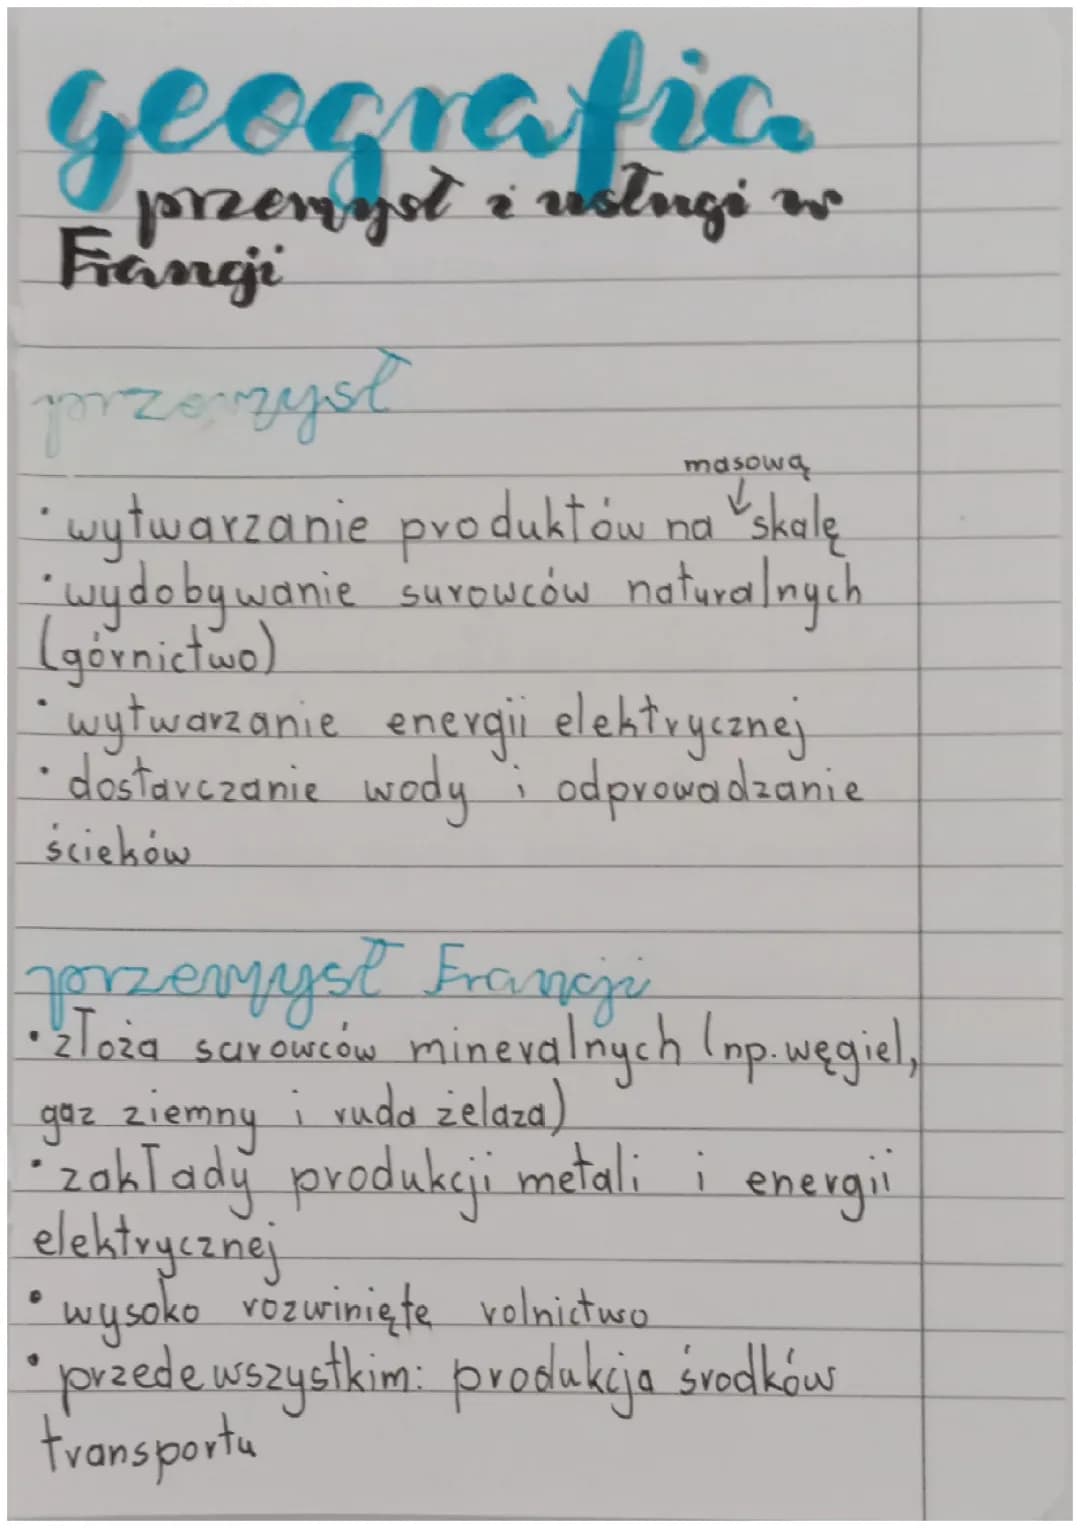 geografia
przemysł i usługi w
Francji
przemysł
masową
• wytwarzanie produktów na ↓ skalę
• wydobywanie surowców naturalnych
(górnictwo)
• wytwarzanie energii elektrycznej
• dostarczanie wody i odprowadzanie
ścieków
przemysł Francji
• złoża surowców mineralnych (np. węgiel,
gaz ziemny i ruda żelaza)
• zakłady produkcji metali i energii
elektrycznej
• wysoko rozwinięte rolnictwo
• przede wszystkim: produkcja środków
transportu